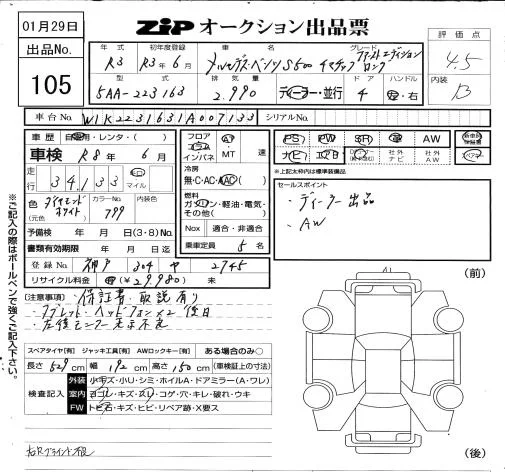 01月29日
ZiP オークション出品票
出品No.
105
評価点
4.5
内装
B
年式
R3
初年度登録
R3年6月
車名
メルセデス・ベンツ S500 4マチック
グレード
ファーストエディション
ロング
型式
5AA-223163
排気量
2.990
ディーラー・並行
ドア
4
ハンドル
左・右
車台No.
W1K2231631A007133
シリアルNo.
車歴 自家用・レンタ・( )
車検 R8年6月
走行
34,133
km
マイル
色
ダイヤモンド
ホワイト
(元色)
カラーNo.
799
内装色
予備検 年 月 日(3・8)No.
書類有効期限 年 月 日迄
登録No. 神戸 304 ヤ 2745
リサイクル料金 有(¥29,980) 未
フロア
コラム
インパネ
AT
・MT
速
冷房
無・C・AC・AAC( )
燃料
ガソリン・軽油・電気・
その他( )
Nox 適合・非適合
乗車定員 5名
PS PW SR AW
ナビ エアB
社外
ナビ
社外
AW
※上記太枠内は標準装備品
セールスポイント
・ディーラー出品
・AW
[注意事項]・保証書・取説有り
・タブレット・ヘッドフォン×2 後日
・左後モニター表示不良
スペアタイヤ[有] ジャッキ工具[有] AWロックキー[有] ある場合のみ○
長さ 529cm 幅 192cm 高さ 150cm (車検証上の寸法)
検査記入
外装 小キズ・小U・シミ・ホイルA・ドアミラー(A・ワレ)
室内 ヨゴレ・キズ・スリ・コゲ・穴・キレ・破れ・ウキ
FW トビ石・キズ・ヒビ・リペア跡・X要ス
右Rブラインド不良
(前)
(後)
※ご記入の際はボールペンで強くご記入下さい。